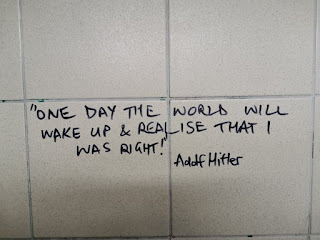 "ONE DAY THE WORLD WILL
WAKE UP & REALISE THAT I
WAS RIGHT!"
Adolf Hitler